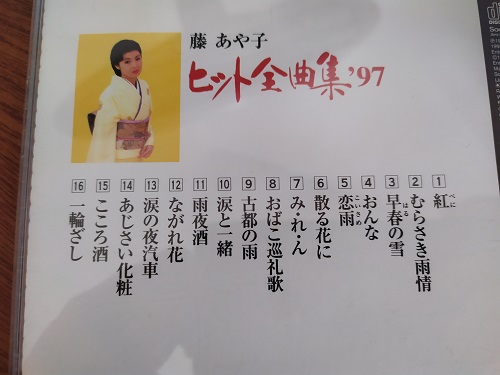 藤 あや子
ヒット全曲集'97
1 紅 べに
2 むらさき雨情
3 早春の雪 はる
4 おんな
5 恋雨 こいさめ
6 散る花に
7 み・れ・ん
8 おばこ巡礼歌
9 古都の雨
10 涙と一緒
11 雨夜酒
12 ながれ花
13 涙の夜汽車
14 あじさい化粧
15 こころ酒
16 一輪ざし